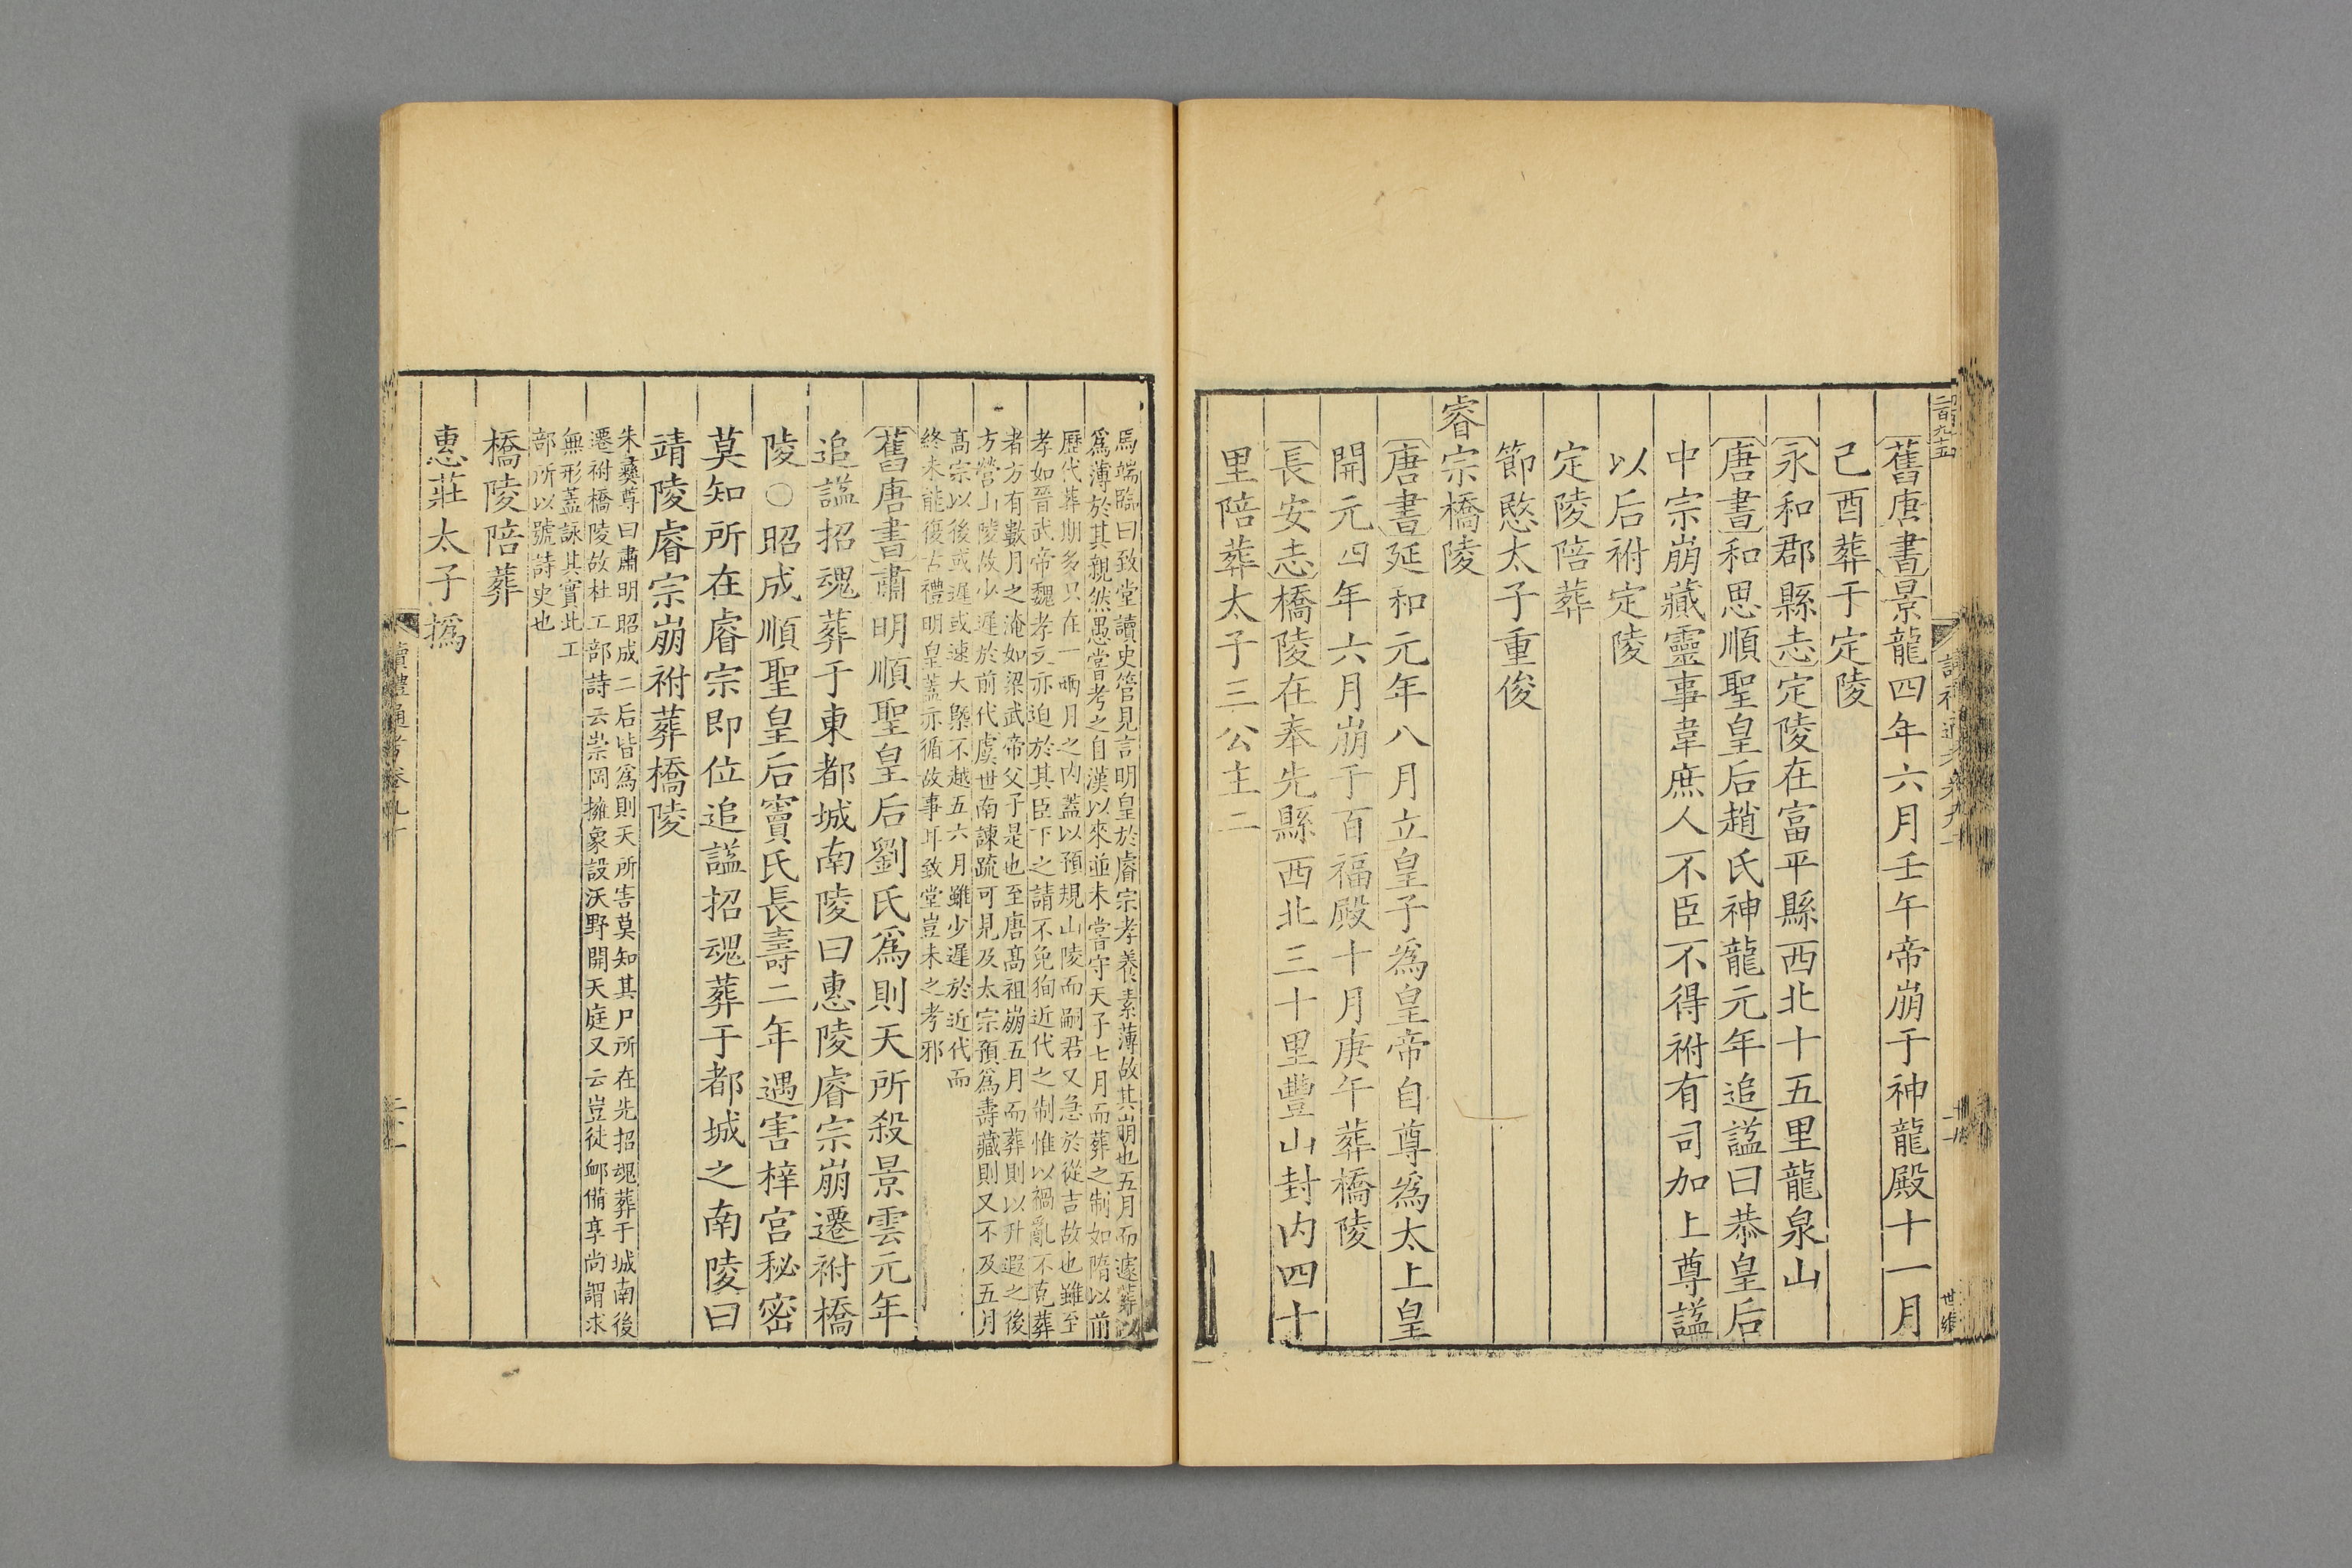 舊唐書景龍四年六月壬午帝崩于神龍殿十一月
己酉葬于定陵
永和郡縣志定陵在富平縣西北十五里龍泉山
唐書和思順聖皇后趙氏神龍元年追諡曰恭皇后
中宗崩藏靈事韋庶人不臣不得祔有司加上尊諡
以后祔定陵
定陵陪葬
節愍太子重俊
睿宗橋陵
唐書延和元年八月立皇子爲皇帝自尊爲太上皇
開元四年六月崩于百福殿十月庚午葬橋陵
長安志橋陵在奉先縣西北三十里豐山封内四十
里陪葬太子三公主二
馬端臨曰致堂讀史管見言明皇於睿宗孝養素薄故其崩也五月而遽葬以
爲薄於其親然愚嘗考之自漢以來並未嘗守天子七月而葬之制如隋以前
歷代葬期多只在一兩月之内蓋以預規山陵而嗣君又急於從吉故也雖至
孝如晉武帝魏孝文亦迫於其臣下之請不免狥近代之制惟以禍亂不克葬
者方有數月之淹如梁武帝父子是也至唐髙祖崩五月而葬則以升遐之後
方營山陵故少遲於前代虞世南諫疏可見及太宗預爲壽藏則又不及五月
髙宗以後或遲或速大槩不越五六月雖少遲於近代而
終未能復古禮明皇蓋亦循故事耳致堂豈未之考邪
舊唐書肅明順聖皇后劉氏爲則天所殺景雲元年
追諡招魂葬于東都城南陵曰惠陵睿宗崩遷祔橋
陵○昭成順聖皇后竇氏長壽二年遇害梓宮秘密
莫知所在睿宗即位追諡招魂葬于都城之南陵曰
靖陵睿宗崩祔葬橋陵
朱彝尊曰肅明昭成二后皆爲則天所害莫知其尸所在先招魂葬于城南後
遷祔橋陵故杜工部詩云崇岡擁象設沃野開天庭又云豈徒䘏備享尚謂求
無形蓋詠其實此工
部所以號詩史也
橋陵陪葬
惠莊太子撝
讀禮通考卷九十